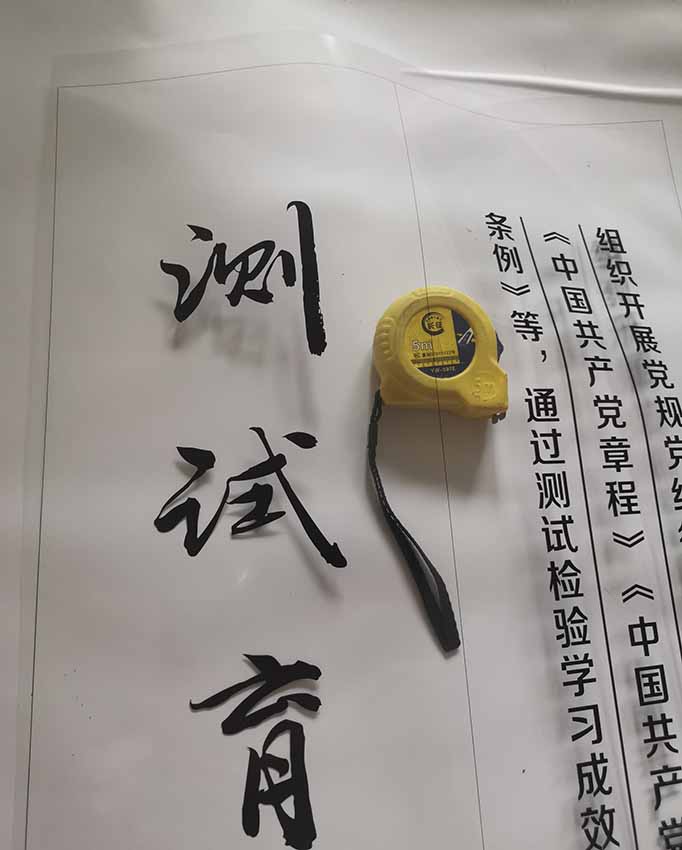 组织开展党规党
《中国共产党章程》《中国共产党
条例》等，通过测试检验学习成效
测试育
5m